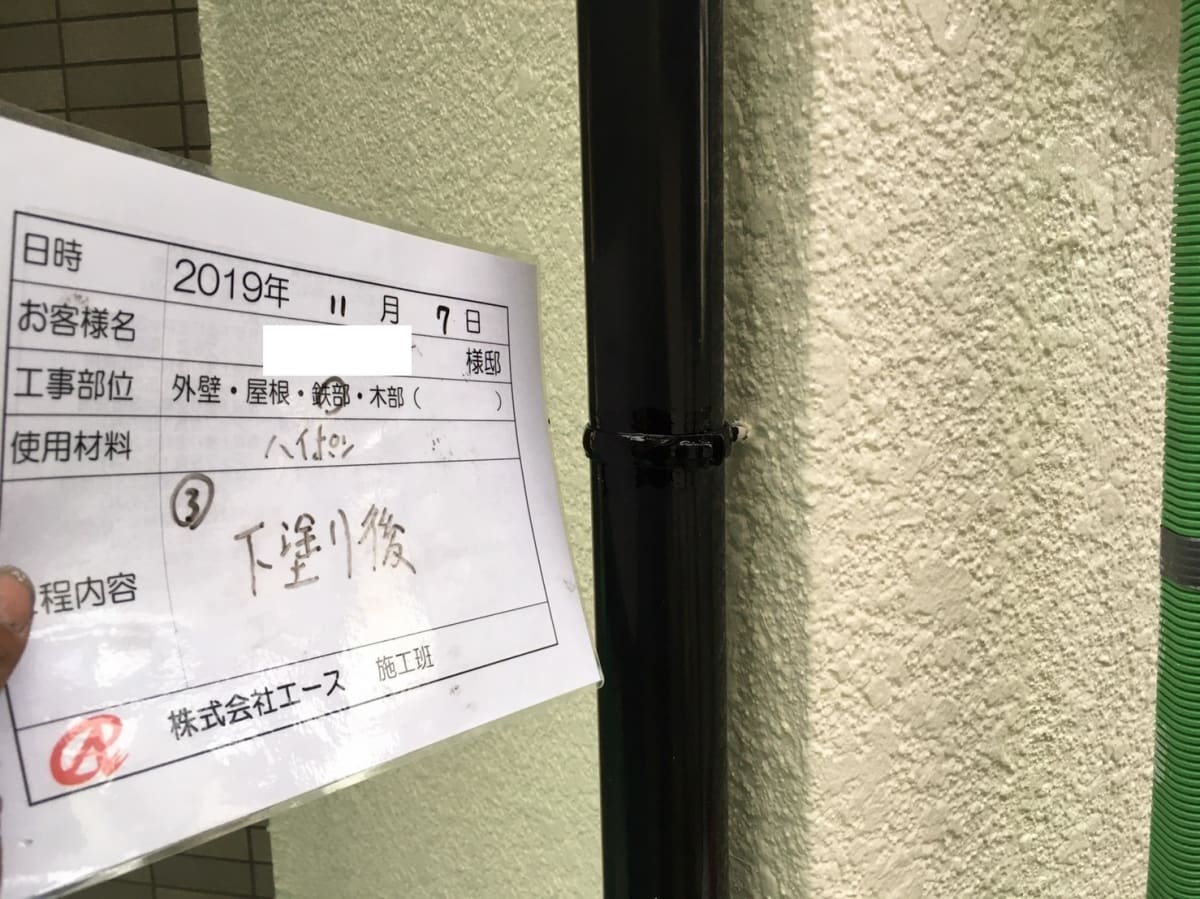 日時 2019年 11 月 7 日
お客様名 様邸
工事部位 外壁・屋根・鉄部・木部( )
使用材料 ハイポン
③
程内容 下塗り後
株式会社エース 施工班